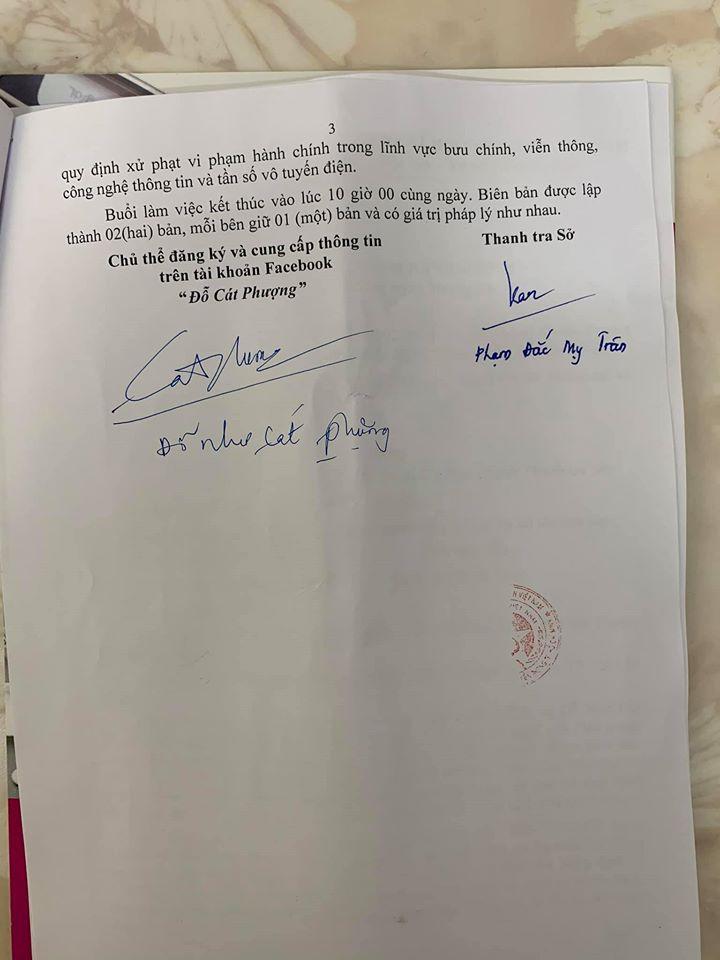 3
quy định xử phạt vi phạm hành chính trong lĩnh vực bưu chính, viễn thông,
công nghệ thông tin và tần số vô tuyến điện.
Buổi làm việc kết thúc vào lúc 10 giờ 00 cùng ngày. Biên bản được lập
thành 02(hai) bản, mỗi bên giữ 01 (một) bản và có giá trị pháp lý như nhau.
Chủ thể đăng ký và cung cấp thông tin
trên tài khoản Facebook
“Đỗ Cát Phượng”
Thanh tra Sở
Phạm Đắc Mỵ Trân
Đỗ như Cát Phượng
VIỆT NAM
VIỆT NAM